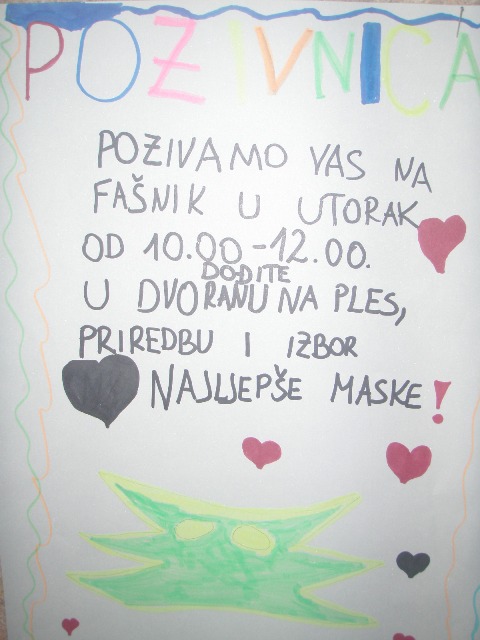 POZIVNICA
POZIVAMO VAS NA
FAŠNIK U UTORAK
OD 10.00 - 12.00.
DOĐITE
U DVORANU NA PLES,
PRIREDBU I IZBOR
NAJLJEPŠE MASKE!